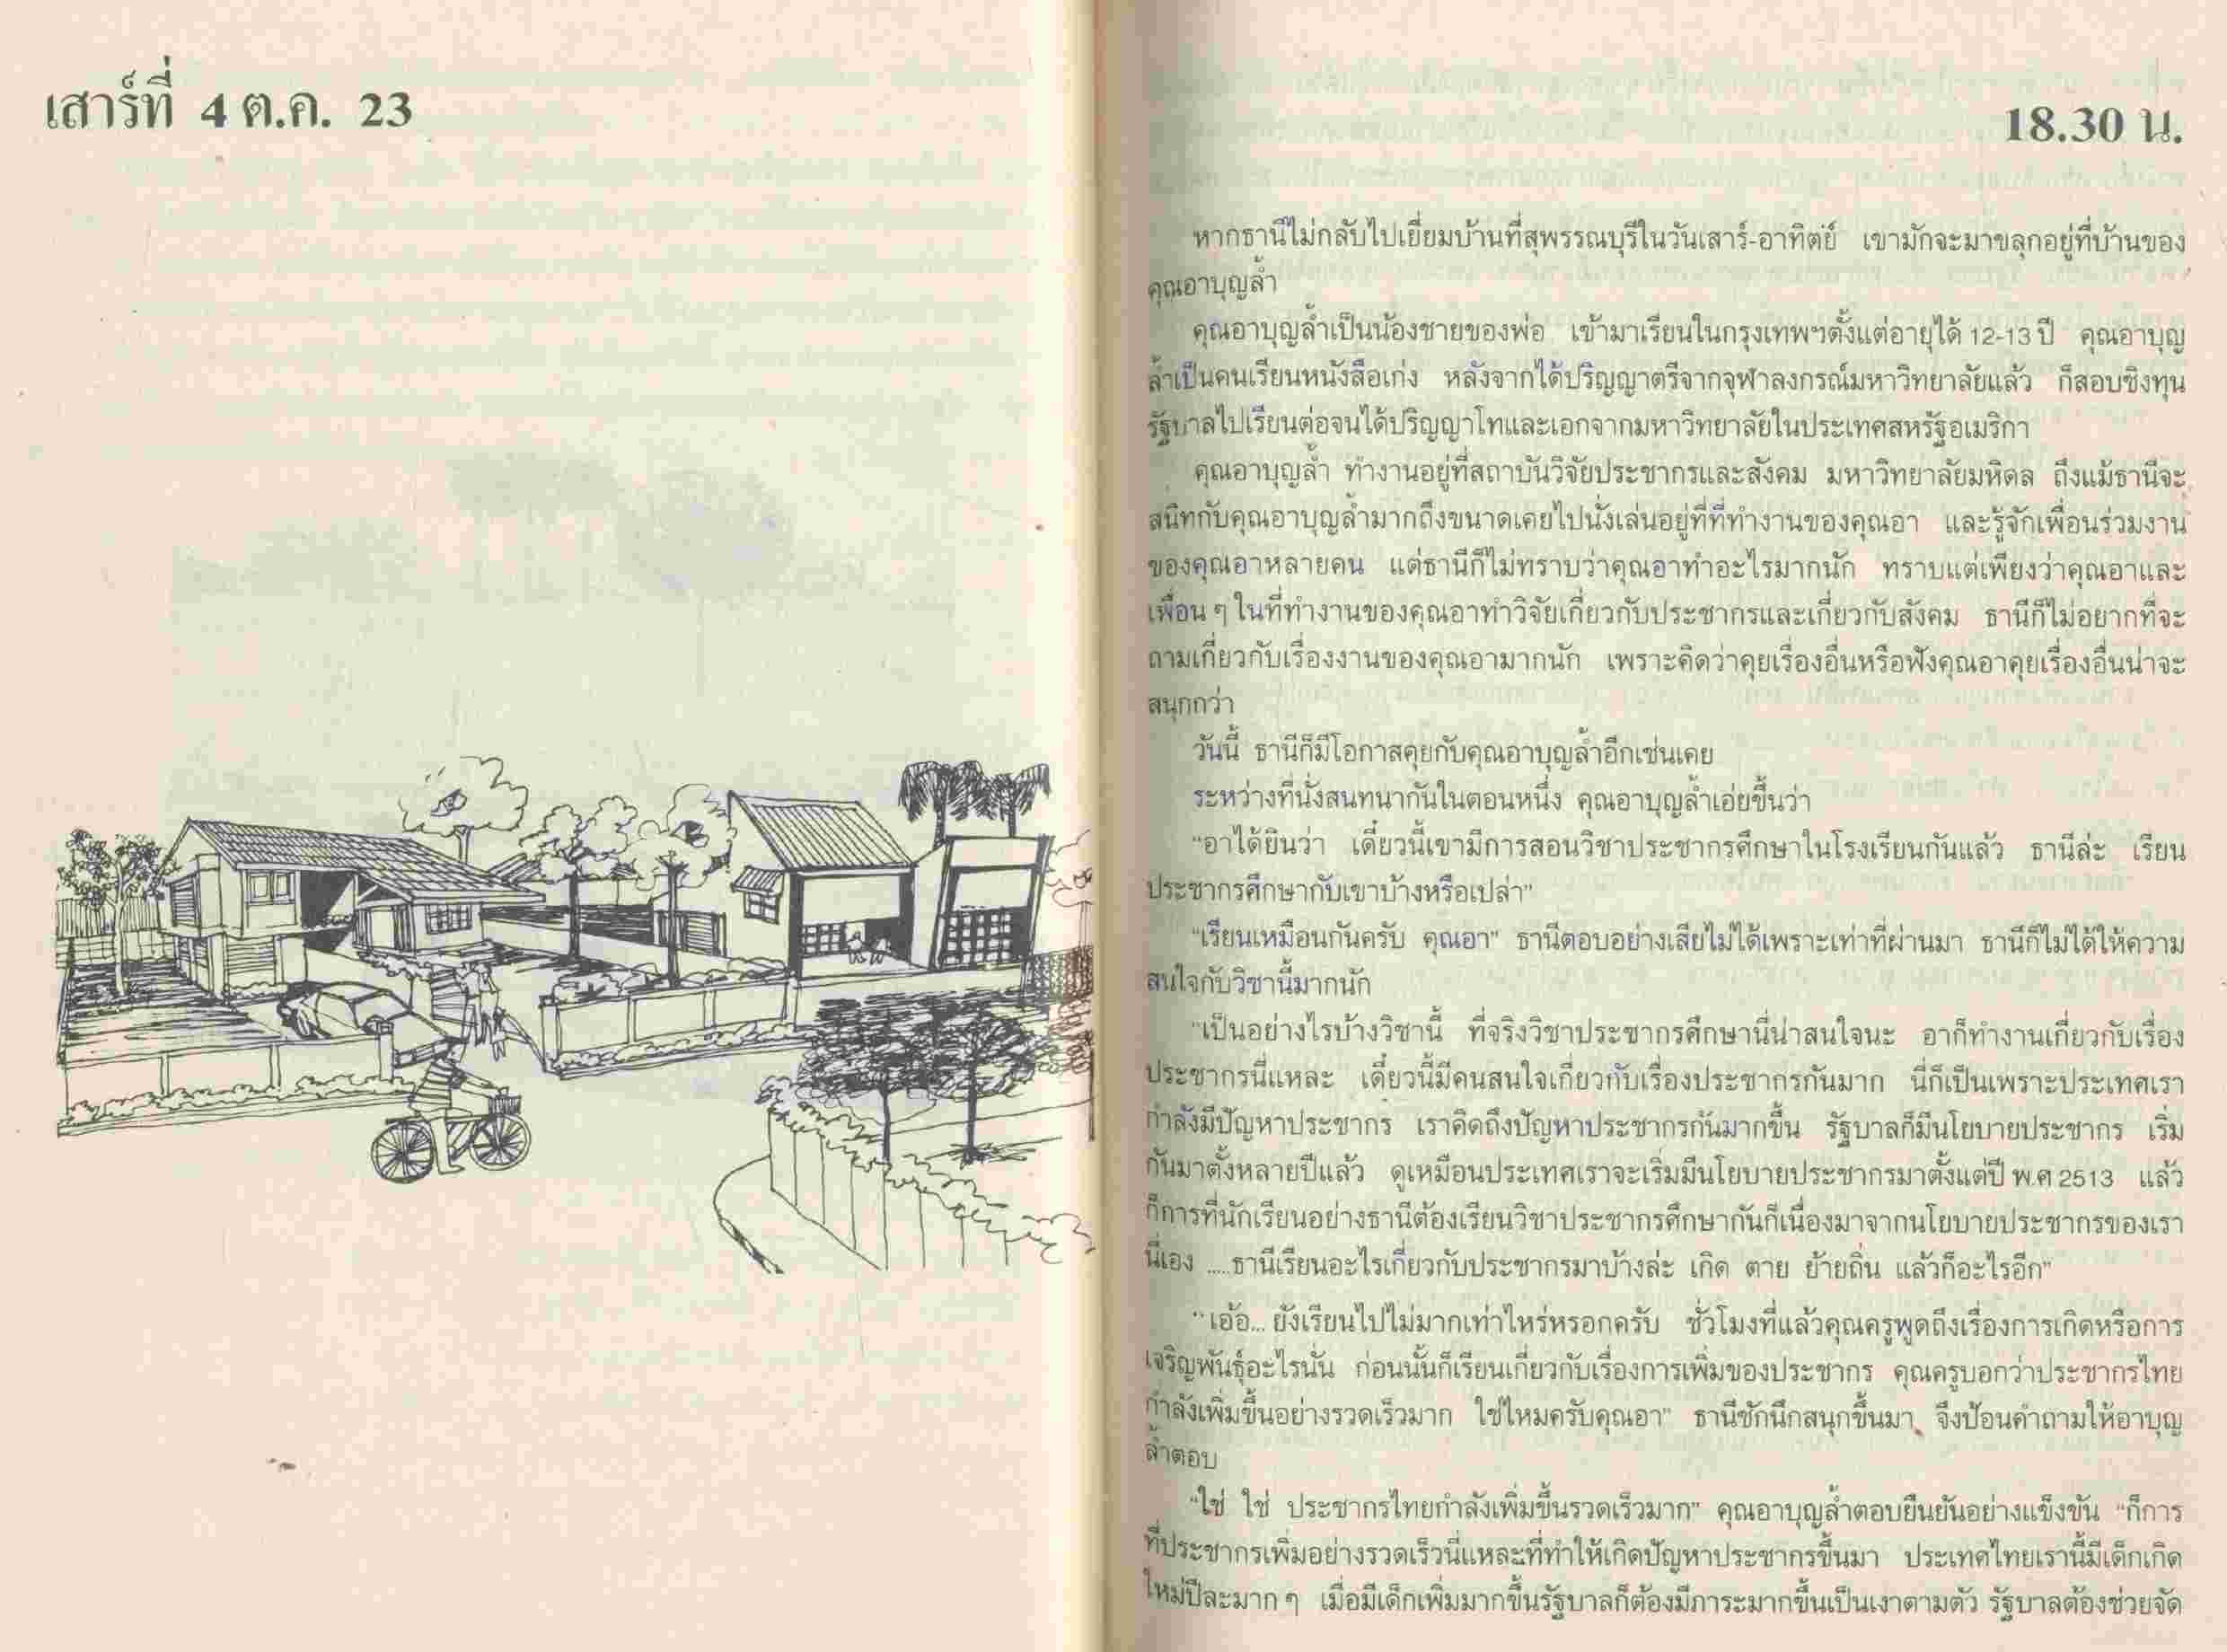 เสาร์ที่ 4 ต.ค. 23
18.30 น.
หากธานีไม่กลับไปเยี่ยมบ้านที่สุพรรณบุรีในวันเสาร์-อาทิตย์ เขามักจะมาขลุกอยู่ที่บ้านของ
คุณอาบุญล้ำ
คุณอาบุญล้ำเป็นน้องชายของพ่อ เข้ามาเรียนในกรุงเทพฯตั้งแต่อายุได้ 12-13 ปี คุณอาบุญ
ล้ำเป็นคนเรียนหนังสือเก่ง หลังจากได้ปริญญาตรีจากจุฬาลงกรณ์มหาวิทยาลัยแล้ว ก็สอบชิงทุน
รัฐบาลไปเรียนต่อจนได้ปริญญาโทและเอกจากมหาวิทยาลัยในประเทศสหรัฐอเมริกา
คุณอาบุญล้ำ ทำงานอยู่ที่สถาบันวิจัยประชากรและสังคม มหาวิทยาลัยมหิดล ถึงแม้ธานีจะ
สนิทกับคุณอาบุญล้ำมากถึงขนาดเคยไปนั่งเล่นอยู่ที่ที่ทำงานของคุณอา และรู้จักเพื่อนร่วมงาน
ของคุณอาหลายคน แต่ธานีก็ไม่ทราบว่าคุณอาทำอะไรมากนัก ทราบแต่เพียงว่าคุณอาและ
เพื่อน ๆ ในที่ทำงานของคุณอาทำวิจัยเกี่ยวกับประชากรและเกี่ยวกับสังคม ธานีก็ไม่อยากที่จะ
ถามเกี่ยวกับเรื่องงานของคุณอามากนัก เพราะคิดว่าคุยเรื่องอื่นหรือฟังคุณอาคุยเรื่องอื่นน่าจะ
สนุกกว่า
วันนี้ ธานีก็มีโอกาสคุยกับคุณอาบุญล้ำอีกเช่นเคย
ระหว่างที่นั่งสนทนากันในตอนหนึ่ง คุณอาบุญล้ำเอ่ยขึ้นว่า
“อาได้ยินว่า เดี๋ยวนี้เขามีการสอนวิชาประชากรศึกษาในโรงเรียนกันแล้ว ธานีล่ะ เรียน
ประชากรศึกษากับเขาบ้างหรือเปล่า”
“เรียนเหมือนกันครับ คุณอา” ธานีตอบอย่างเสียไม่ได้เพราะเท่าที่ผ่านมา ธานีก็ไม่ได้ให้ความ
สนใจกับวิชานี้มากนัก
“เป็นอย่างไรบ้างวิชานี้ ที่จริงวิชาประชากรศึกษานี่น่าสนใจนะ อาก็ทำงานเกี่ยวกับเรื่อง
ประชากรนี่แหละ เดี๋ยวนี้มีคนสนใจเกี่ยวกับเรื่องประชากรกันมาก นี่ก็เป็นเพราะประเทศเรา
กำลังมีปัญหาประชากร เราคิดถึงปัญหาประชากรกันมากขึ้น รัฐบาลก็มีนโยบายประชากร เริ่ม
กันมาตั้งหลายปีแล้ว ดูเหมือนประเทศเราจะเริ่มมีนโยบายประชากรมาตั้งแต่ปี พ.ศ 2513 แล้ว
ก็การที่นักเรียนอย่างธานีต้องเรียนวิชาประชากรศึกษากันก็เนื่องมาจากนโยบายประชากรของเรา
นี่เอง .....ธานีเรียนอะไรเกี่ยวกับประชากรมาบ้างล่ะ เกิด ตาย ย้ายถิ่น แล้วก็อะไรอีก”
“เอ้อ... ยังเรียนไปไม่มากเท่าไหร่หรอกครับ ชั่วโมงที่แล้วคุณครูพูดถึงเรื่องการเกิดหรือการ
เจริญพันธุ์อะไรนั่น ก่อนนั้นก็เรียนเกี่ยวกับเรื่องการเพิ่มของประชากร คุณครูบอกว่าประชากรไทย
กำลังเพิ่มขึ้นอย่างรวดเร็วมาก ใช่ไหมครับคุณอา” ธานีชักนึกสนุกขึ้นมา จึงป้อนคำถามให้อาบุญ
ล้ำตอบ
“ใช่ ใช่ ประชากรไทยกำลังเพิ่มขึ้นรวดเร็วมาก” คุณอาบุญล้ำตอบยืนยันอย่างแข็งขัน “ก็การ
ที่ประชากรเพิ่มอย่างรวดเร็วนี่แหละที่ทำให้เกิดปัญหาประชากรขึ้นมา ประเทศไทยเรานี้มีเด็กเกิด
ใหม่ปีละมาก ๆ เมื่อมีเด็กเพิ่มมากขึ้นรัฐบาลก็ต้องมีภาระมากขึ้นเป็นเงาตามตัว รัฐบาลต้องช่วยจัด